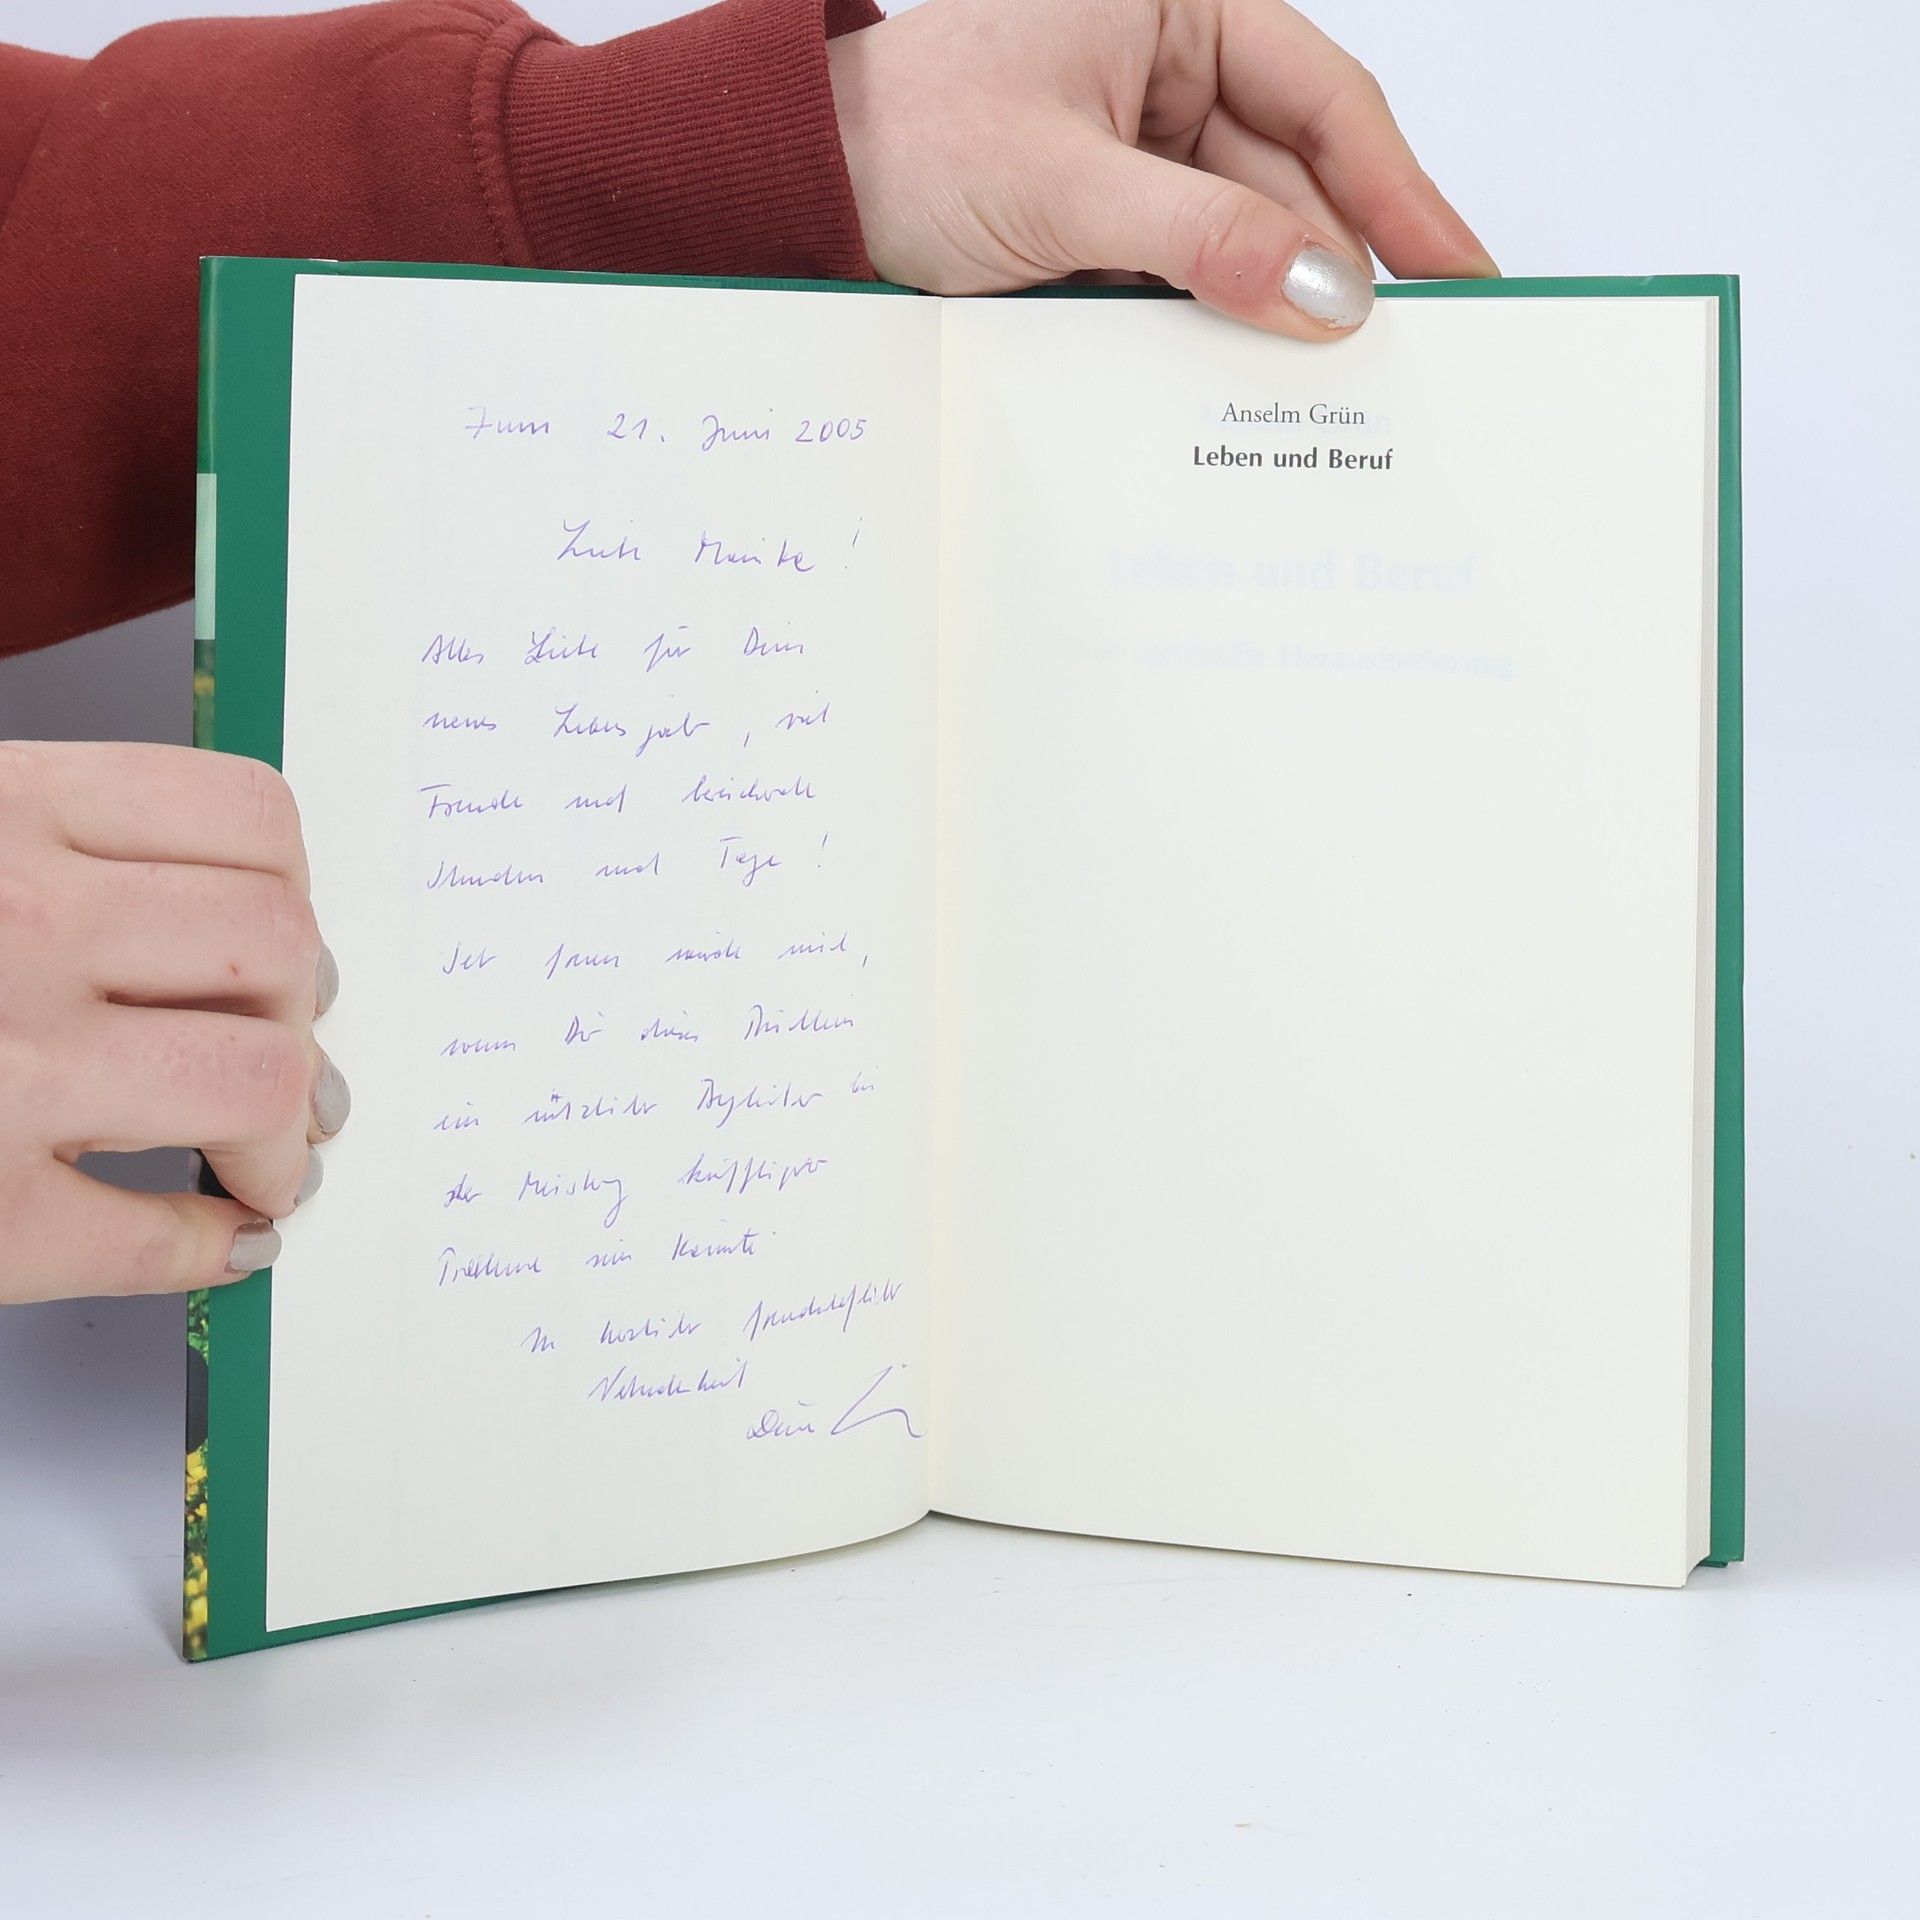 Zum 21. Juni 2005
Liebe Marika!
Alles Liebe für Dein
neues Lebensjahr, viel
Freude und
Stunden und Tage!
Ich freuen würde mich,
wenn Dir dieses Büchlein
ein nützlicher Begleiter bei
der Meisterung künftiger
Probleme sein könnte.
In herzlicher freundschaftlicher
Verbundenheit
Dein
Anselm Grün
Leben und Beruf
Leben und Beruf
Herausforderung